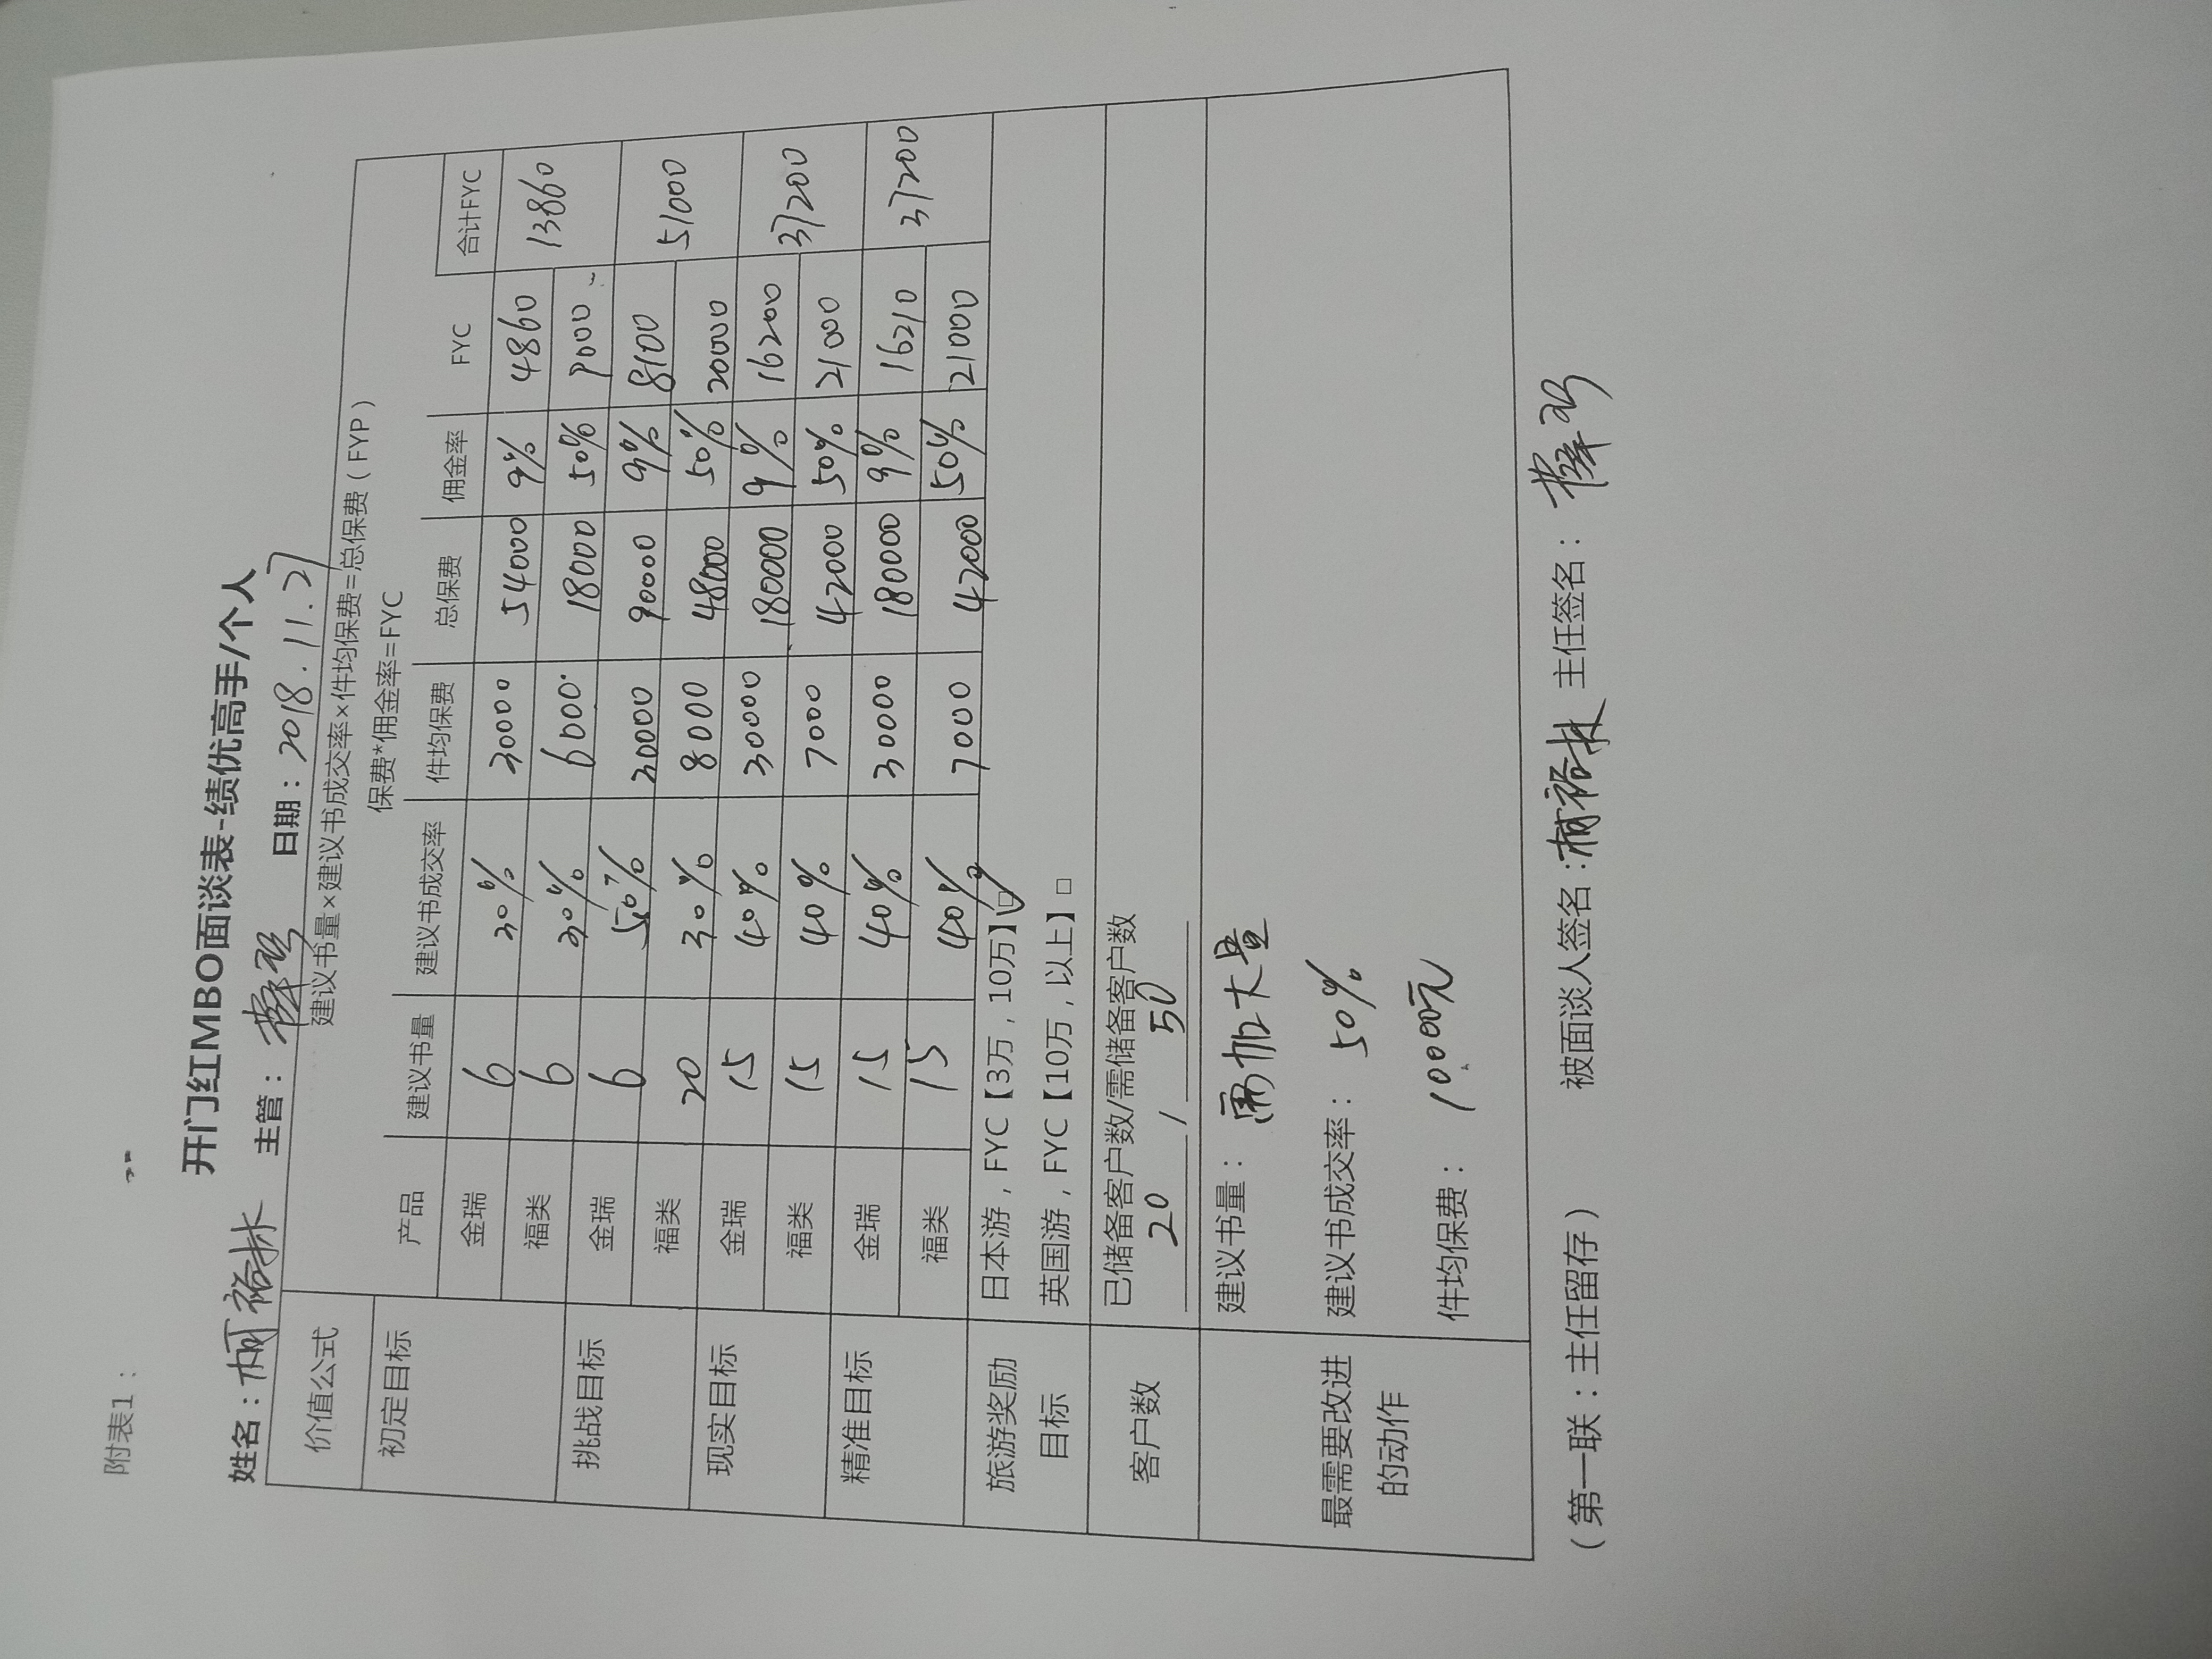 附表1：
开门红MBO面谈表-绩优高手/个人
姓名：柯裕林 主管： 日期：2018.11.27
价值公式 建议书量×建议书成交率×件均保费=总保费（FYP）
保费*佣金率=FYC
初定目标 产品 建议书量 建议书成交率 件均保费 总保费 佣金率 FYC 合计FYC
金瑞 6 30% 30000 54000 9% 4860 13860
福类 6 30% 6000 18000 50% 9000
挑战目标 金瑞 6 50% 30000 90000 9% 8100 51000
福类 20 30% 8000 48000 50% 20000
现实目标 金瑞 15 40% 30000 180000 9% 16200 37200
福类 15 40% 7000 42000 50% 21000
精准目标 金瑞 15 40% 30000 180000 9% 16210 37200
福类 15 40% 7000 42000 50% 21000
旅游奖励目标 日本游，FYC【3万，10万】☑
英国游，FYC【10万，以上】□
客户数 已储备客户数/需储备客户数
20 / 50
最需要改进的动作 建议书量：需加大量
建议书成交率：50%
件均保费：10000元
（第一联：主任留存） 被面谈人签名：柯裕林 主任签名：